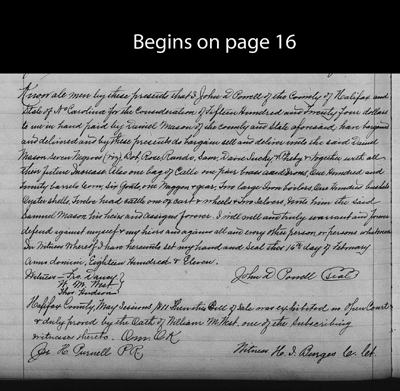 Begins on page 16
Know all men by these presents that I John D Powell of the County of Halifax and
State of No Carolina for the Consideration of Fifteen Hundred and Twenty Four dollars
to me in hand paid by Daniel Mason of the county and State aforesaid, have bargained
and delivered and by these presents do bargain sell and deliver unto the said Daniel
Mason seven Negroes (viz) Bob, Rose, Sam, Davie, & together with all
their future Increase also one bag of one pair brass Irons, One Hundred and
twenty barrels corn, Six one Waggon & gear, Two large Iron One
Oyster shells, Twelve head cattle one ox cart & wheels & Two unto him the said
Daniel Mason, his heirs and assigns forever. I will well and truly warrant and forever
defend against myself & my heirs and against all and every other person, or persons whatsoever
In Witness Whereof I have hereunto set my hand and Seal this 16th day of February
Anno domini, Eighteen Hundred & Eleven.
Witness
W. M. West
John D Powell (seal)
Halifax County, May Sessions 1811 Then this Bill of Sale was exhibited in Open Court
& duly proved by the Oath of William M. West, one of the Subscribing
witnesses hereto.
H. Purnell P.R.
Witness H. Burges